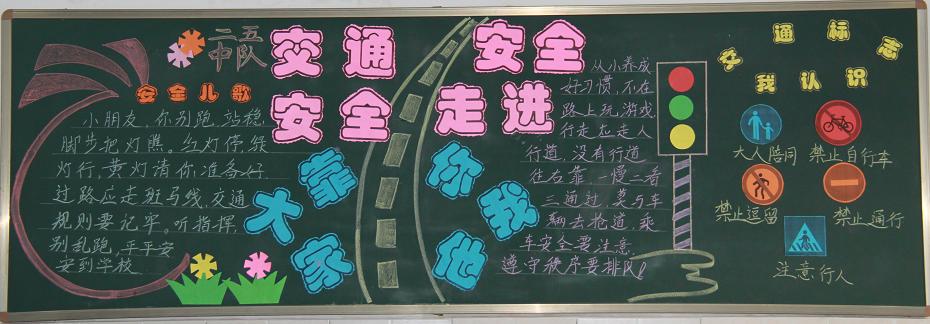 二五
中队
交通 安全
安全 走进
大家靠
你我他
安全儿歌
小朋友,你别跑,站稳
脚步把灯瞧。红灯停绿
灯行,黄灯请你准备好.
过路应走斑马线,交通
规则要记牢。听指挥,
别乱跑,平平安
安到学校
从小养成
好习惯,不在
路上玩游戏,
行走应走人
行道,没有行道
往右靠,一慢二看
三通过,莫与车
辆去抢道,乘
车安全要注意,
遵守秩序要排队
交通标志
我认识
大人陪同
禁止自行车
禁止逗留
禁止通行
注意行人